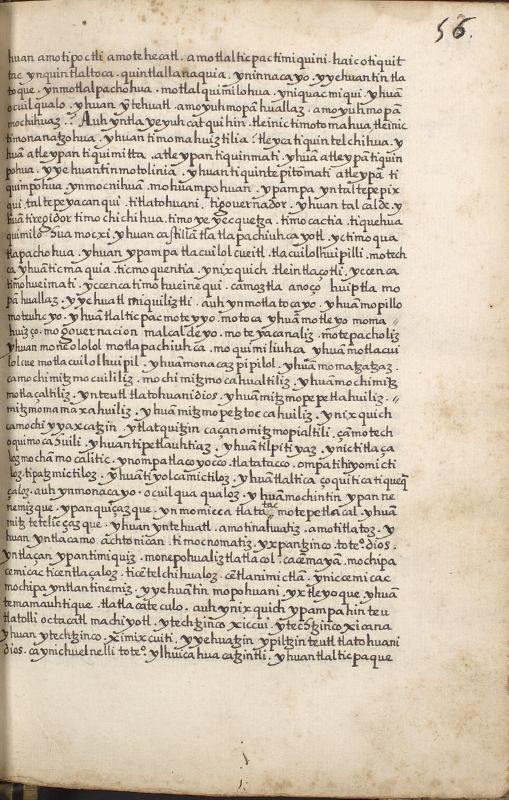 56.
huan amotipoctli amotehecatl. amotlalticpactimiquini. haicotiquit
tac ynquintlaltoca. quintlallanaquia. yninnacayo. yyehuantin tla
toque. ynmotlalpachohua. motlalquimilohua. yniquac miqui. yhuā
ocuilqualo. yhuan ytehuatl. amoyuhmopā huallaz. amoyuhmopā
mochihuaz. Auh yntla yeyuh catqui hin. tleinic timotomahua, tleinic
timonanatzohua. yhuan timomahuiztilia. tleyca tiquintelchihua. y
huā atleypan tiquimitta. atleypan tiquinmati. yhuā atleypā tiquin
pohua. yyehuantin motolinia. yhuan tiquintepitomati atleypā ti
quimpohua. ynmocnihuā. mohuampohuan. ypampa yntaltepepix
qui. taltepeyacanqui. titlatohuani, tigovernador. yhuan talcalde. y
huā tiregidor timochichihua. timoyeyecquetza. timocactia. tiquehua
quimilo yhuan castillā tlatlapachiuhcayotl. yctimoqua
tlapachohua. yhuan ypampa tlacuilolcueitl. tlacuilolhuipilli. motech
ca yhuā ticmaquia. ticmoquentia. ynixquich tlein tlaçotli. yccenca
timohueimati. yccenca timohueinequi. camoztla anoço huiptla mo
pā huallaz. yyehuatl miquiliztli. auh ynmotlatocayo. yhuā mopillo
moteuhcyo. yhuā tlalticpacmoteyyo. motoca yhuā motleyo moma
huizço. mogovernacion malcaldeyo. moteyacanaliz. motepacholiz
yhuan moneololol motlapachiuhca. moquimiliuhca yhuā motlacui
lolcue motlacuilolhuipil. yhuā monacazpipilol. yhuā momatzatzaz.
camochimitzmocuililiz. mochimitzmocahualtiliz. yhuā mochimitz
motlaçaltiliz. ynteutl tlatohuani dios. yhuā mitzmopepetlahuiliz.
mitzmomamaxahuiliz. yhuā mitzmopetztocahuiliz. ynixquich
camochi yyaxcatzin ytlatquitzin caçan omitzmopialtili. çā motech
oquimocahuili. yhuan tipetlauhtiaz. yhuā tilpitiyaz. ynictitlaça
loz mochāmocalitic. ynompatlacoyocco. tlatatacco. ompatihiyomicti
loz. tipatzmictiloz. yhuā tiyolcamictiloz. yhuā tlaltica çoquitica tiqueq̄
çaloz. auh ynmonacayo. ocuilqua qualoz. yhuā mochintin ypanne
nemizque. ypanquiçazque. ynmomicca tlatatac motepetlacal. yhuā
mitztetelicçazque. yhuan yntehuatl. amotinahuatiz. amotitlatoz. y
huan yntlacamo achtonican timocnomatiz. yxpantzinco. toteo. dios.
yntlaçan ypantimiquiz. monepohualiztlatlacol. cacemayan. mochipa
cemicac ticentlaçaloz. ticentelchihualoz. centlani mictlā. yniccemicac
mochipa yntlantinemiz. yyehuātin mopohuani. yxtleyoque yhuā
temamauhtique. tlatlacateculo. auh ynixquich ypampahin teu
tlatolli octacatl machiyotl. ytechtzinco xiccui. ytechtzinco xicana
yhuan ytechtzinco. ximixcuiti. yyehuatzin ypiltzin teutl tlatohuani
dios. ca ynichuelnelli toteo. ylhuicahuacatzintli. yhuan tlalticpaque